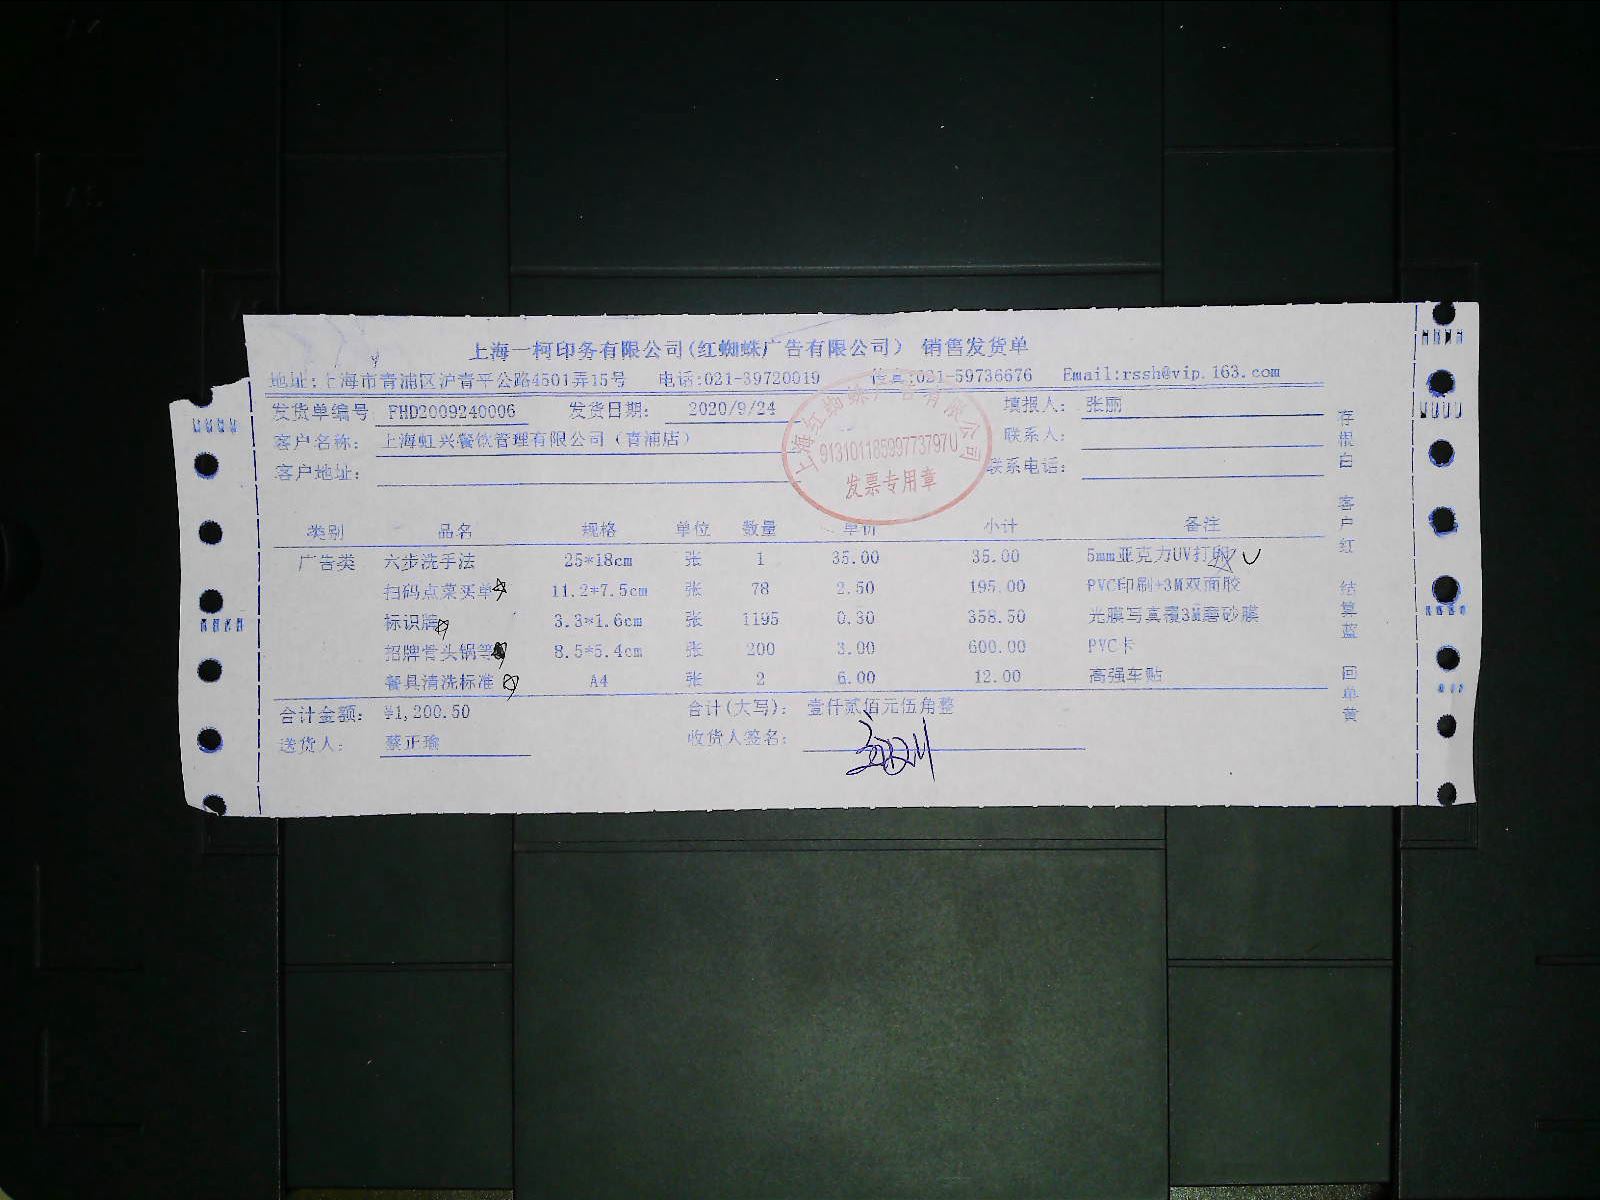 上海一柯印务有限公司(红蜘蛛广告有限公司) 销售发货单
地址:上海市青浦区沪青平公路4501弄15号 电话:021-39720019 传真:021-59736676 Email:rssh@vip.163.com
发货单编号 FHD2009240006 发货日期: 2020/9/24 填报人: 张丽
客户名称: 上海虹兴餐饮管理有限公司(青浦店) 联系人:
客户地址: 联系电话:
上海红蜘蛛广告有限公司
91310118599773797U
发票专用章
类别 品名 规格 单位 数量 单价 小计 备注
广告类 六步洗手法 25*18cm 张 1 35.00 35.00 5mm亚克力UV打印
扫码点菜买单 11.2*7.5cm 张 78 2.50 195.00 PVC印刷+3M双面胶
标识牌 3.3*1.6cm 张 1195 0.30 358.50 光膜写真覆3M磨砂膜
招牌骨头锅等 8.5*5.4cm 张 200 3.00 600.00 PVC卡
餐具清洗标准 A4 张 2 6.00 12.00 高强车贴
合计金额: ¥1,200.50 合计(大写): 壹仟贰佰元伍角整
送货人: 蔡正瑜 收货人签名:
存根白 客户红 结算蓝 回单黄